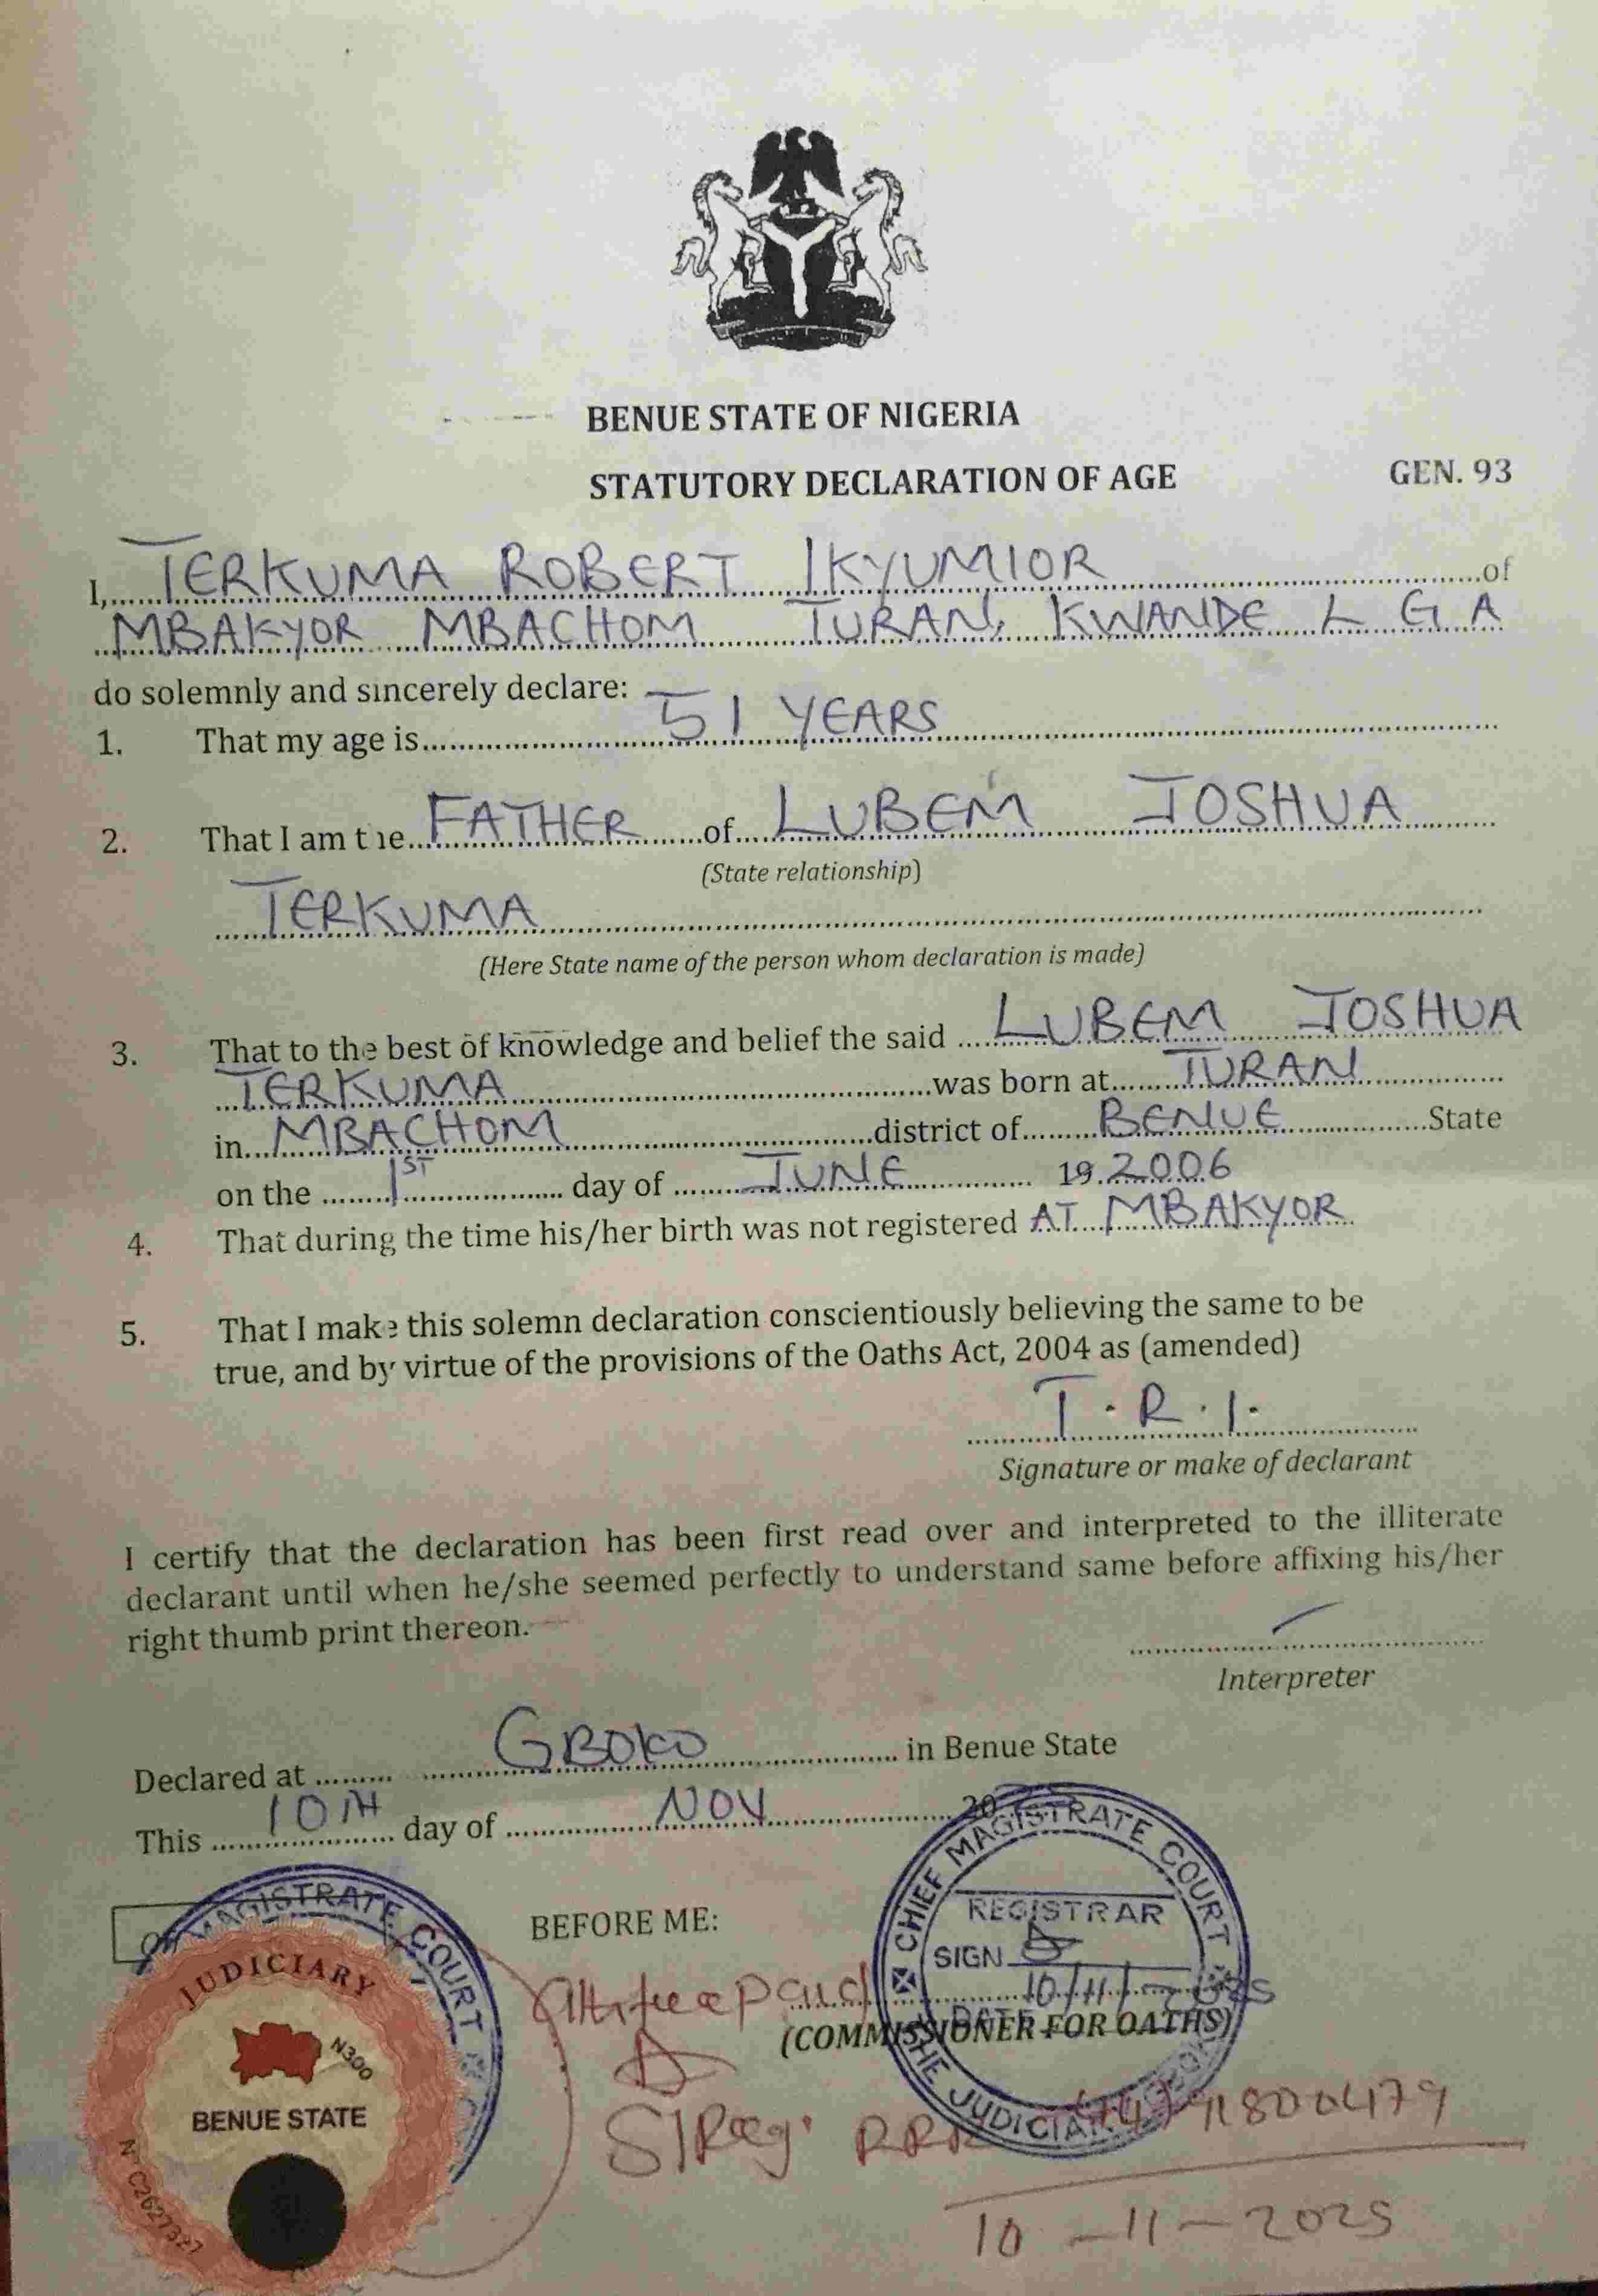 BENUE STATE OF NIGERIA
STATUTORY DECLARATION OF AGE GEN. 93
I,......TERKUMA ROBERT IKYUMIOR..........of
MBAKYOR MBACHOM TURAN, KWANDE L G A
do solemnly and sincerely declare:
1. That my age is..........51 YEARS
2. That I am the..FATHER......of....LUBEM JOSHUA
(State relationship)
TERKUMA
(Here State name of the person whom declaration is made)
3. That to the best of knowledge and belief the said ....LUBEM JOSHUA
TERKUMA..........was born at.......TURAN
in...MBACHOM..........district of........BENUE..........State
on the ........1ST.......... day of ........JUNE.......... 19.2006
4. That during the time his/her birth was not registered AT MBAKYOR
5. That I make this solemn declaration conscientiously believing the same to be
true, and by virtue of the provisions of the Oaths Act, 2004 as (amended)
T.R.I.
Signature or make of declarant
I certify that the declaration has been first read over and interpreted to the illiterate
declarant until when he/she seemed perfectly to understand same before affixing his/her
right thumb print thereon.
Interpreter
Declared at ......... GBOKO.......... in Benue State
This ....10TH.......... day of ..........NOV.......... 20
CHIEF MAGISTRATE COURT
REGISTRAR
SIGN
10/11/2025
DATE
THE JUDICIARY GBOKO
MAGISTRATE COURT
BEFORE ME:
(COMMISSIONER FOR OATHS)
JUDICIARY
N300
BENUE STATE
No C2627327
paid
S/Reg. RRR
91800479
10-11-2025